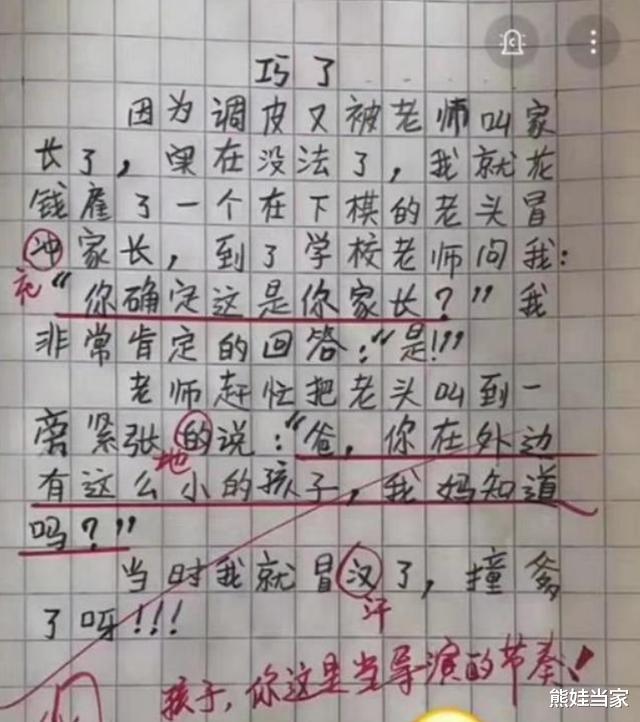 巧了
因为调皮又被老师叫家
长了，实在没法了，我就花
钱雇了一个在下棋的老头冒
冲家长，到了学校老师问我：
充
“你确定这是你家长？”我
非常肯定的回答：“是!!!”
老师赶忙把老头叫到一
旁紧张的说：“爸，你在外边
地
有这么小的孩子，我妈知道
吗？”
当时我就冒汉了，撞爹
汗
了呀!!!
孩子，你这是当导演的节奏！
熊娃当家